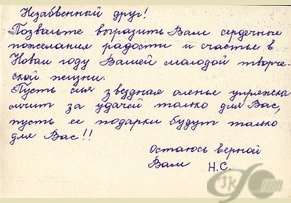 Незабвенный друг!
Позвольте выразить Вам сердечные
пожелания радости и счастья в
Новом году Вашей молодой творче-
ской жизни.
Пусть эта звездная оленья упряжка
мчит за удачей только для Вас,
пусть ее подарки будут только
для Вас!!
Остаюсь верной
Вам Н.С.